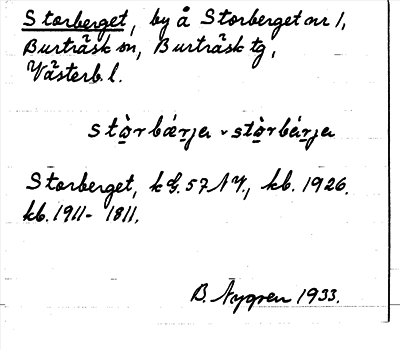 Storberget, by å Storberget nr 1,
Burträsk sn, Burträsk tg,
Västerb. l.
stò̱rbæṟja - stò̱rbáṟja
Storberget, k G. 57 NV., kb. 1926.
kb. 1911- 1811.
B. Nygren 1933.